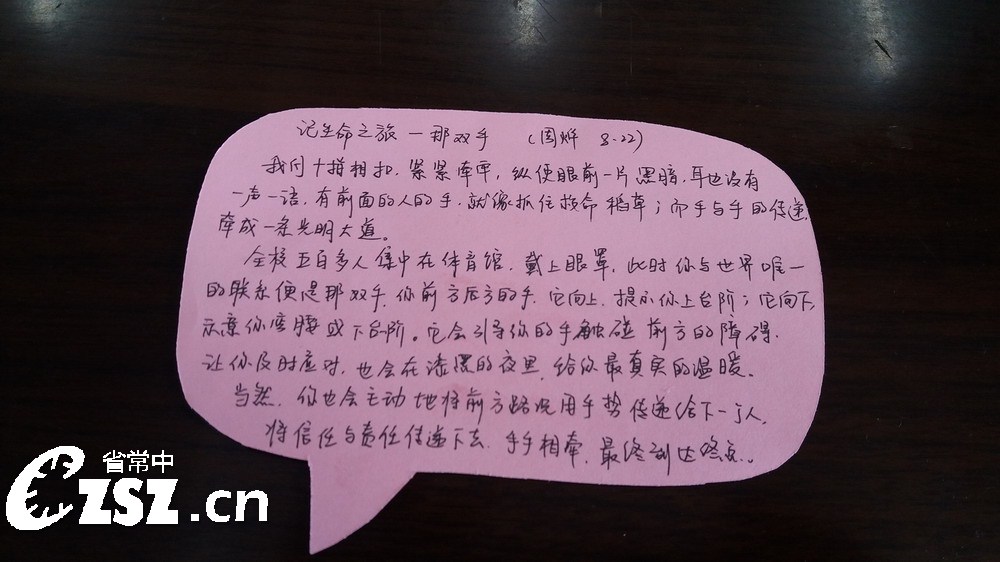 记生命之旅 — 那双手 (周烨 8.22)
我们十指相扣,紧紧牵牢,纵使眼前一片黑暗,耳也没有
一声一语,有前面的人的手,就像抓住救命稻草;而手与手的传递,
牵成一条光明大道。
全校五百多人集中在体育馆,戴上眼罩,此时你与世界唯一
的联系便是那双手,你前方后方的手,它向上,提示你上台阶;它向下
示意你弯腰或下台阶。它会引导你的手触碰前方的障碍,
让你及时应对,也会在漆黑的夜里,给你最真实的温暖。
当然,你也会主动地将前方路况用手势传递给下一个人,
将信任与责任传递下去,手手相牵,最终到达终点。
省常中
CZSZ.cn